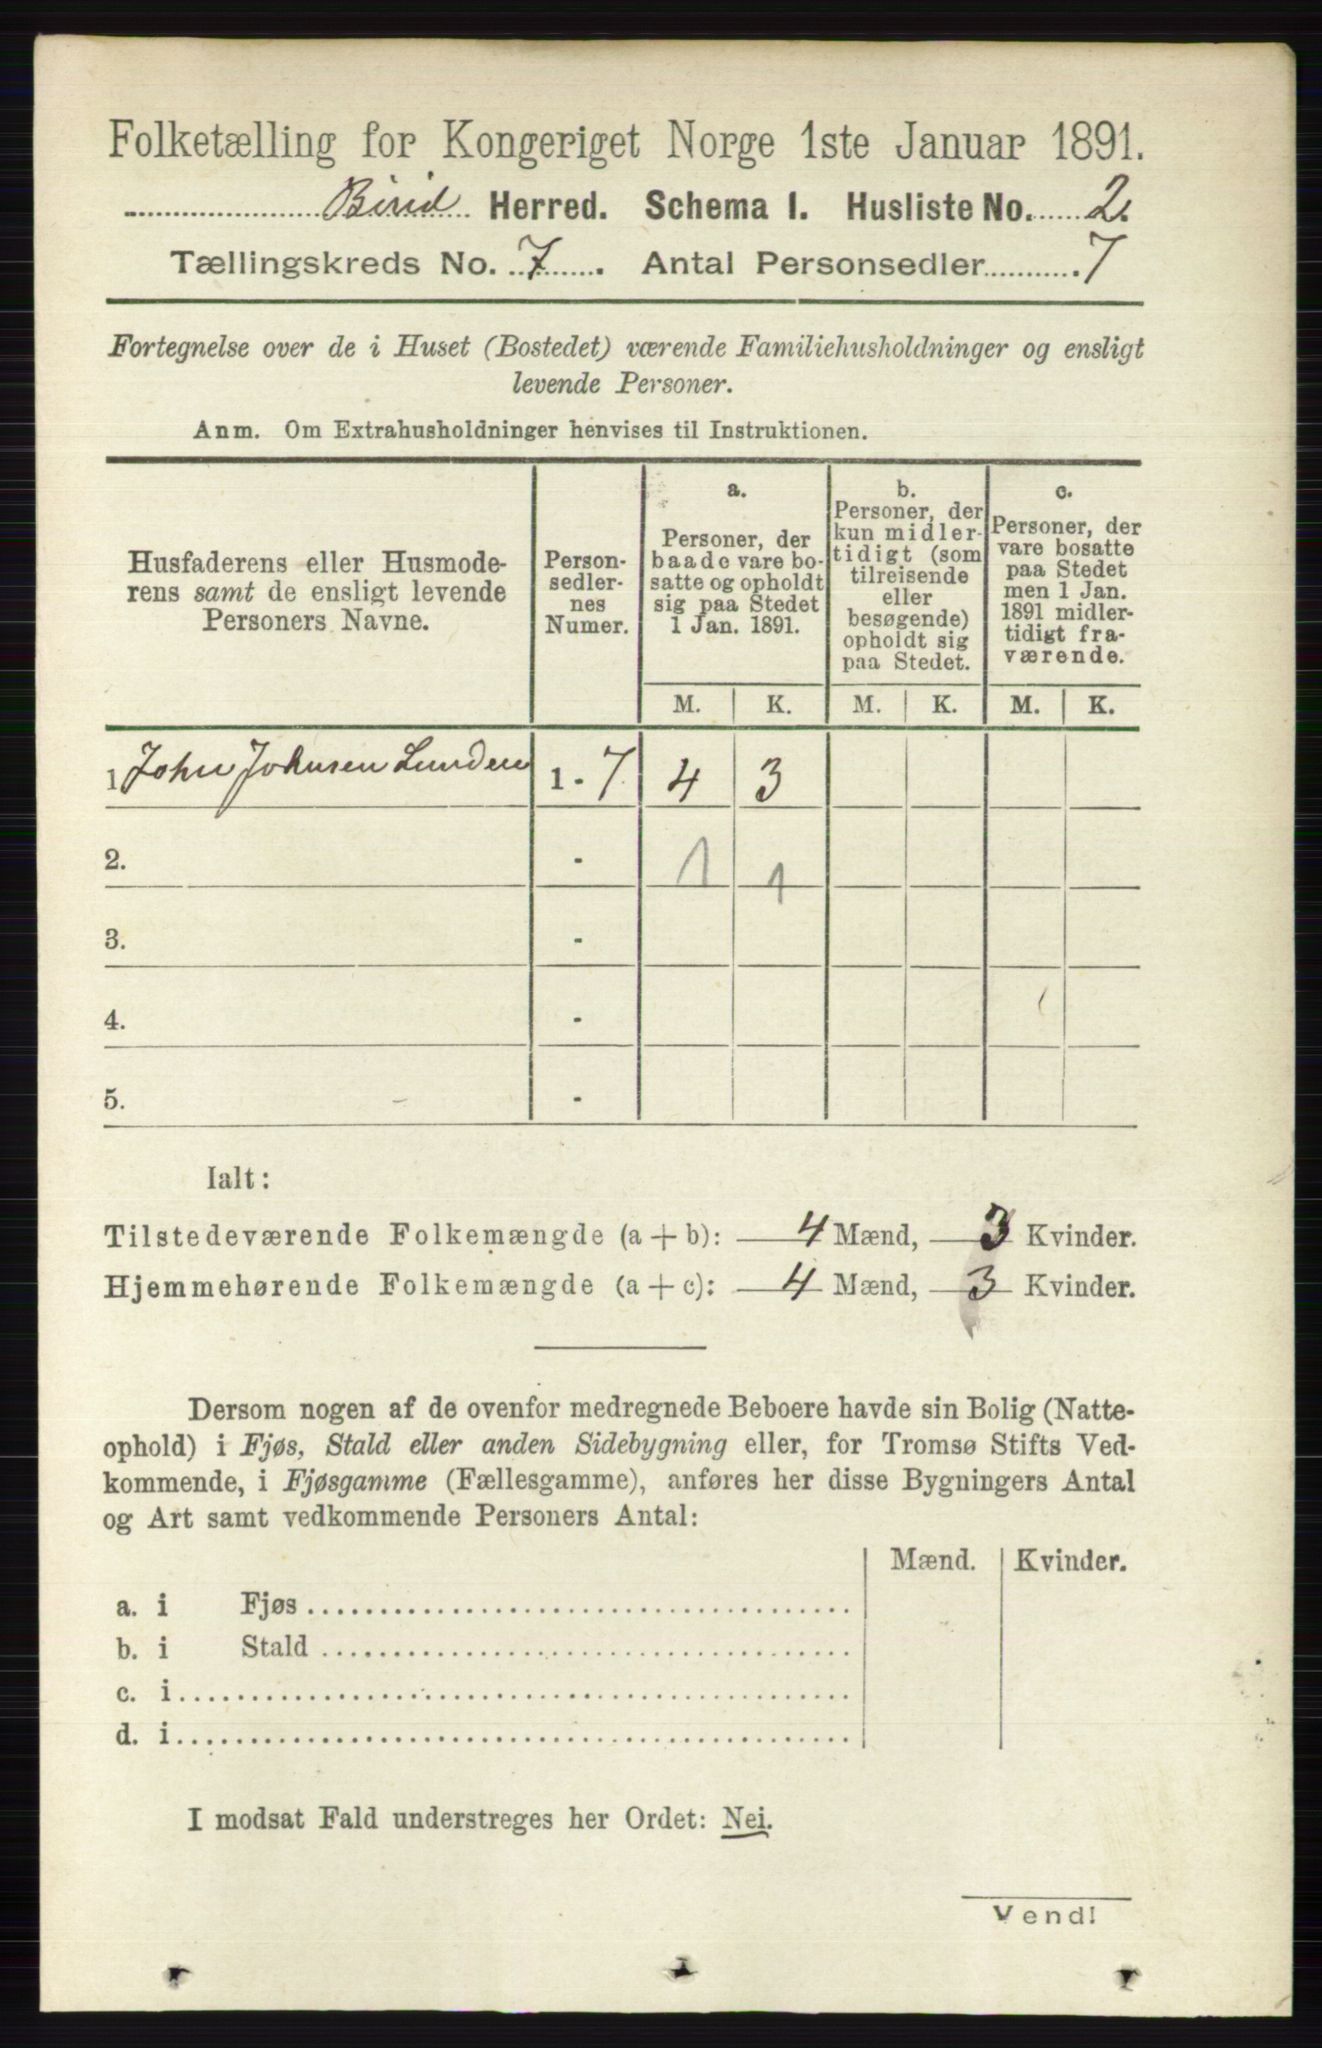 Folketælling for Kongeriget Norge 1ste Januar 1891.
Birid Herred. Schema 1. Husliste No. 2.
Tællingskreds No. 7. Antal Personsedler 7
Fortegnelse over de i Huset (Bostedet) værende Familiehusholdninger og ensligt
levende Personer.
Anm. Om Extrahusholdninger henvises til Instruktionen.
Husfaderens eller Husmode-
rens samt de ensligt levende
Personers Navne.
Person-
sedler-
nes
Numer.
a.
Personer, der
baade vare bo-
satte og opholdt
sig paa Stedet
1 Jan. 1891.
b.
Personer, der
kun midler-
tidigt (som
tilreisende
eller
besøgende)
opholdt sig
paa Stedet.
c.
Personer, der
vare bosatte
paa Stedet
men 1 Jan.
1891 midler-
tidigt fra-
værende.
M. K. M. K. M. K.
1 John Johnsen Lunden 1 - 7 4 3
2. - 1 1
3. -
4. -
5. -
Ialt:
Tilstedeværende Folkemængde (a + b): 4 Mænd, 3 Kvinder.
Hjemmehørende Folkemængde (a + c): 4 Mænd, 3 Kvinder.
Dersom nogen af de ovenfor medregnede Beboere havde sin Bolig (Natte-
ophold) i Fjøs, Stald eller anden Sidebygning eller, for Tromsø Stifts Ved-
kommende, i Fjøsgamme (Fællesgamme), anføres her disse Bygningers Antal
og Art samt vedkommende Personers Antal:
Mænd. Kvinder.
a. i Fjøs
b. i Stald
c. i
d. i
I modsat Fald understreges her Ordet: Nei.
Vend!